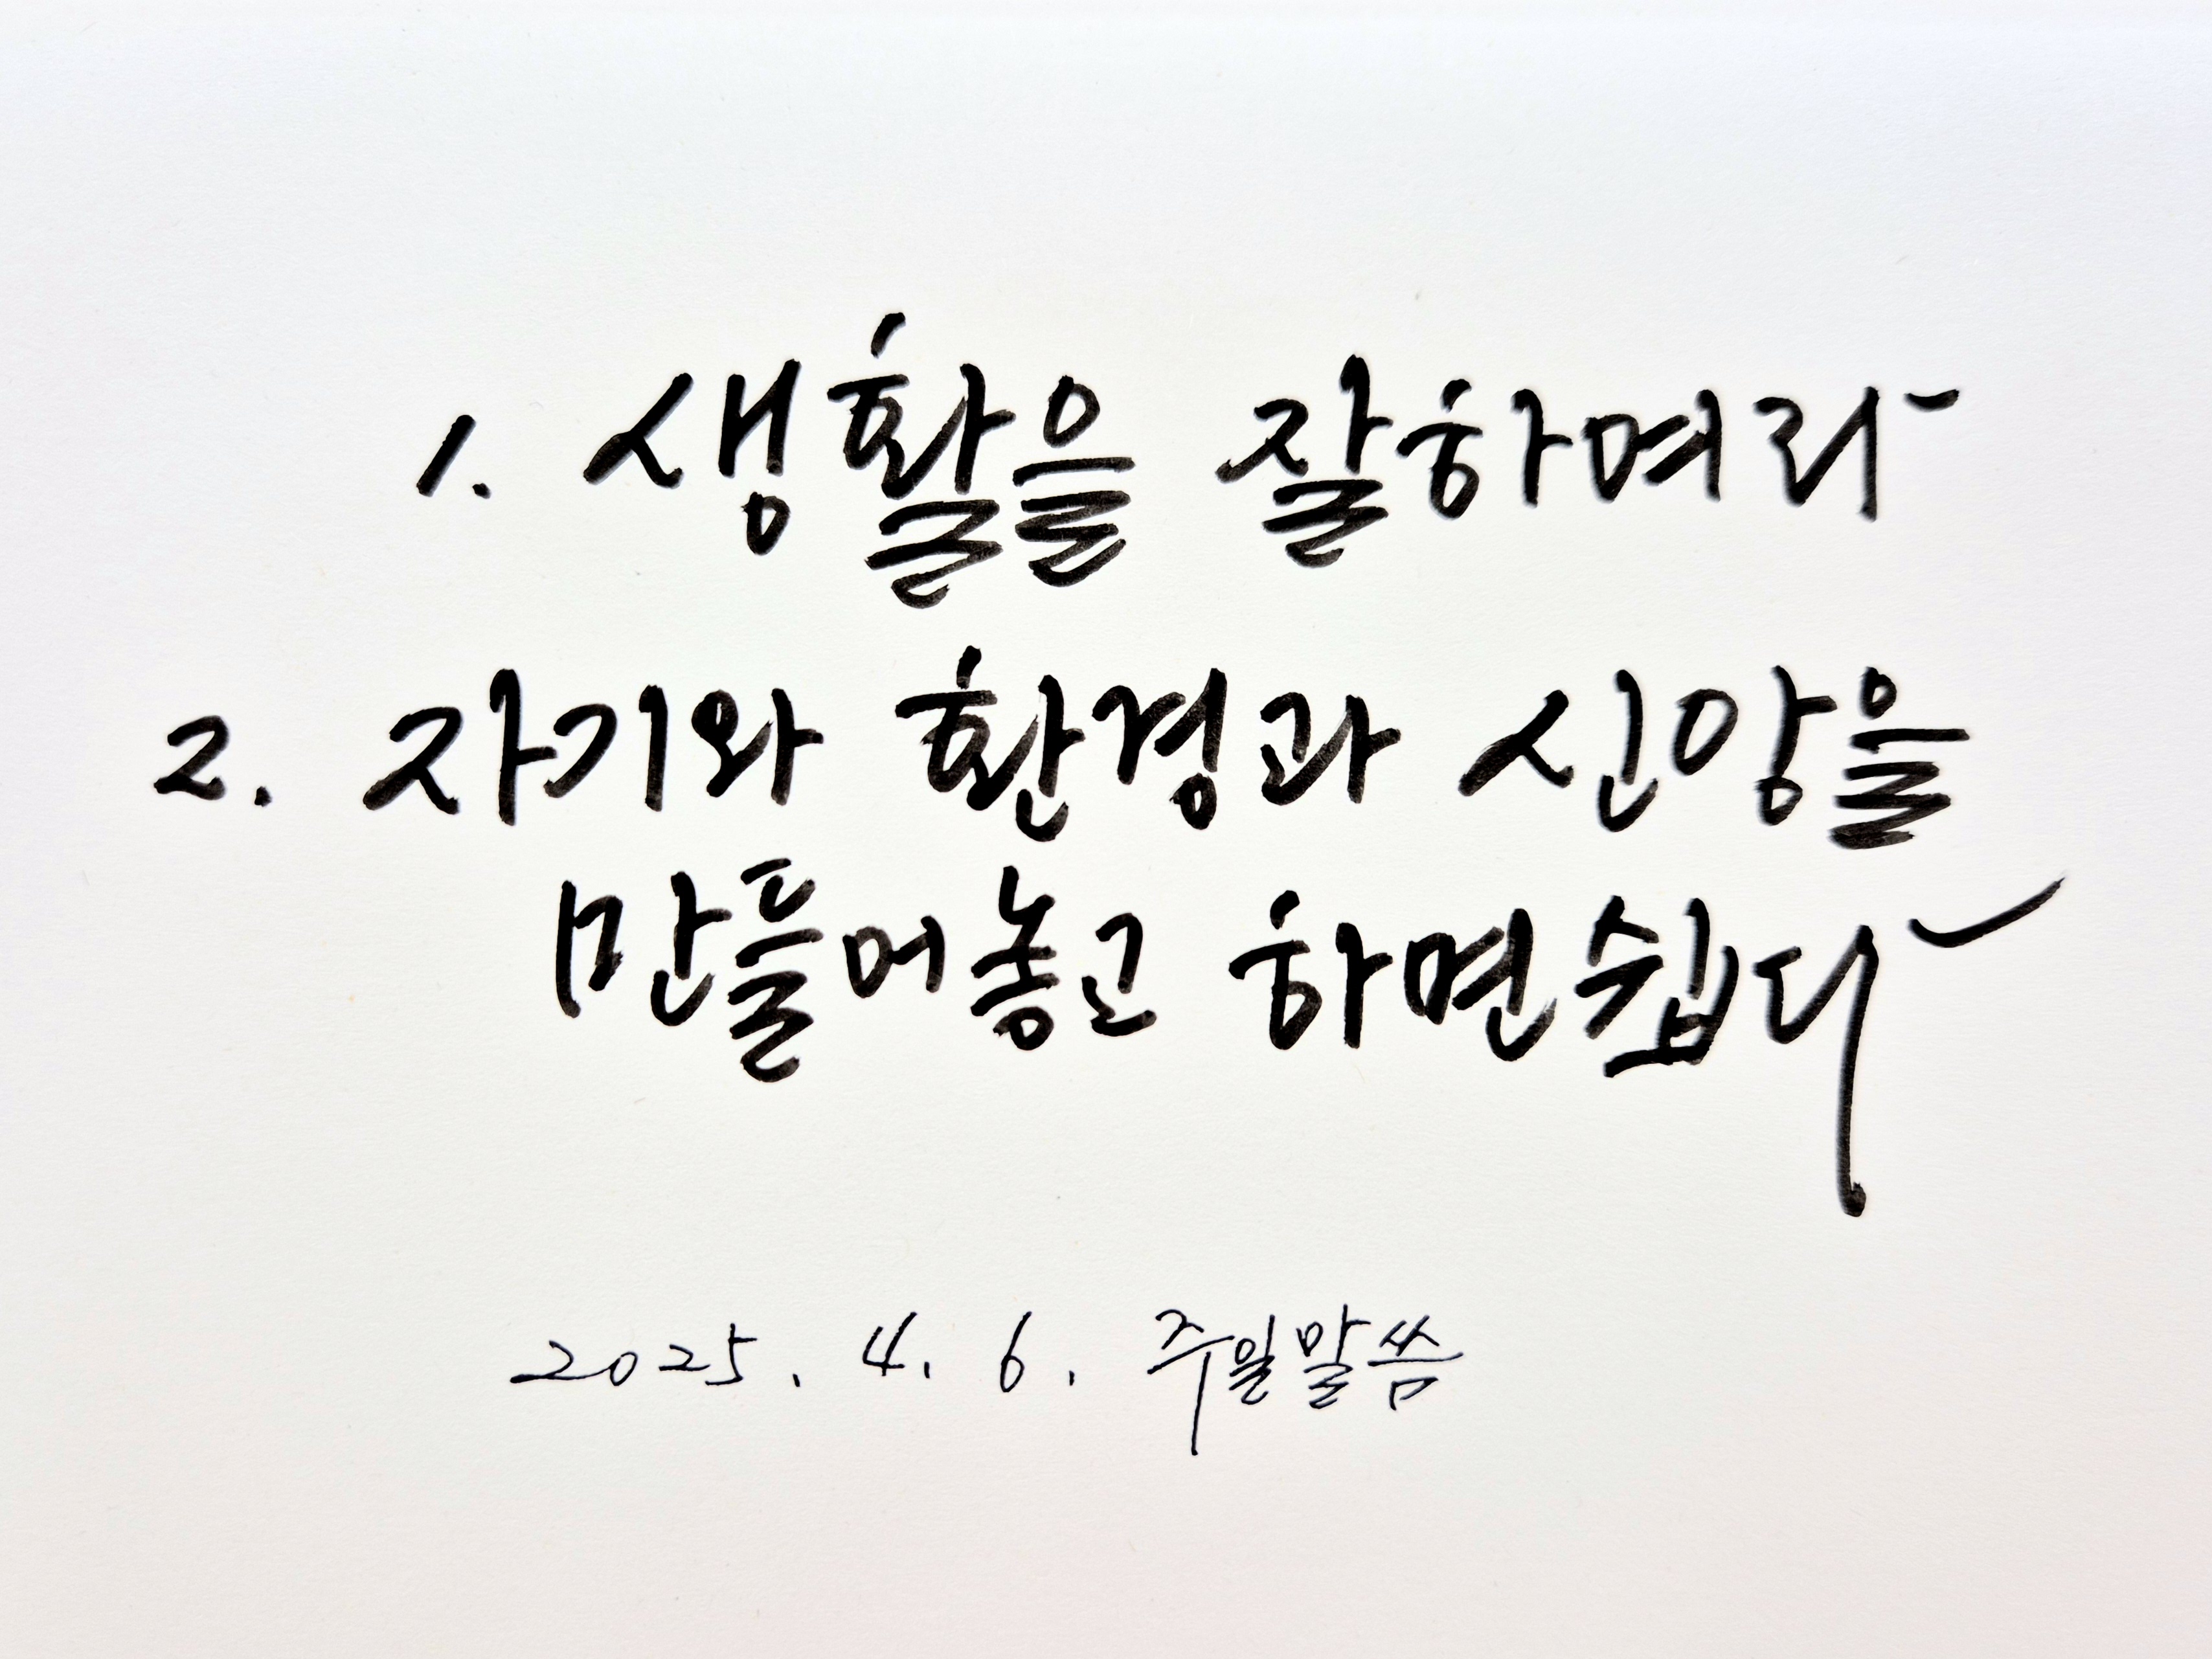 1. 생활을 잘하여라
2. 자기와 환경과 신앙을
만들어놓고 하면쉽다
2025. 4. 6. 주일말씀